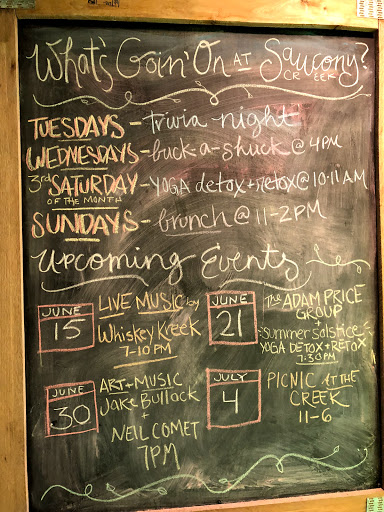 What's Goin' On AT Saucony?
CREEK
TUESDAYS - trivia night
WEDNESDAYS - buck-a-shuck @ 4PM
3rd SATURDAY - YOGA detox + retox @ 10:11 AM
OF THE MONTH
SUNDAYS - brunch @ 11-2PM
Upcoming Events
JUNE
15
LIVE MUSIC by
Whiskey Kreek
7-10 PM
JUNE
21
THE ADAM PRICE
GROUP
+
summer solstice
YOGA DETOX + RETOX
7:30 PM
JUNE
30
ART + MUSIC
Jake Bullock
+
NEIL COMET
7PM
JULY
4
PICNIC AT THE
CREEK
11-6